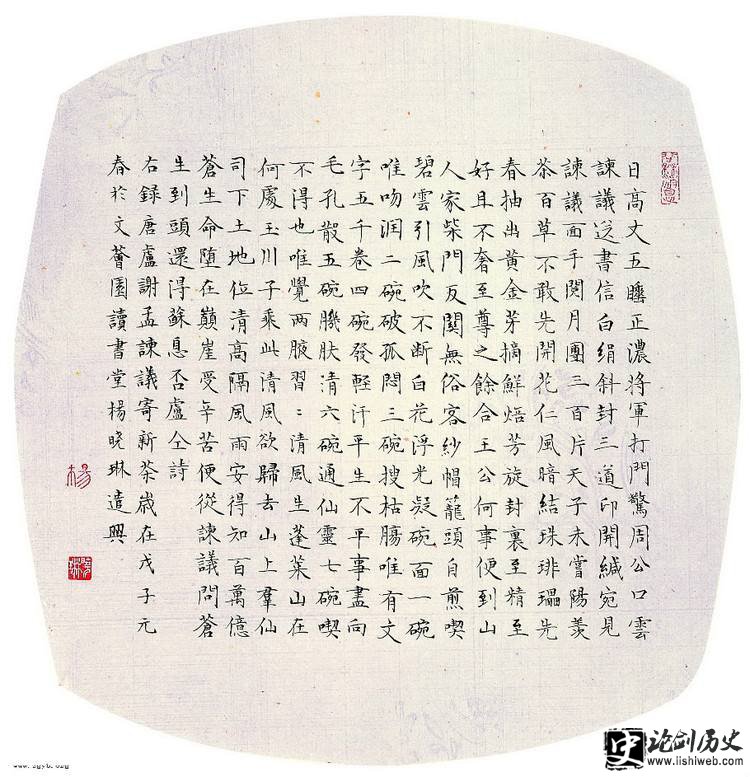 日高丈五睡正濃將軍打門驚周公口雲
諫議送書信白絹斜封三道印開緘宛見
諫議面手閱月團三百片天子未嘗陽羨
茶百草不敢先開花仁風暗結珠琲瓃先
春抽出黄金芽摘鮮焙芳旋封裹至精至
好且不奢至尊之餘合王公何事便到山
人家柴門反關無俗客紗帽籠頭自煎喫
碧雲引風吹不断白花浮光凝碗面一碗
唯吻润二碗破孤悶三碗搜枯腸唯有文
字五千卷四碗發輕汗平生不平事盡向
毛孔散五碗肌肤清六碗通仙靈七碗喫
不得也唯覺兩腋習〻清風生蓬萊山在
何處玉川子乘此清風欲歸去山上羣仙
司下土地位清高隔風雨安得知百萬億
蒼生命堕在巔崖受辛苦便從諫議問蒼
生到頭還得蘇息否盧仝詩
右録唐盧謝孟諫議寄新茶歲在戊子元
春於文薈園讀書堂楊曉琳遣興
楊
史 论剑历史
www.lishiweb.com